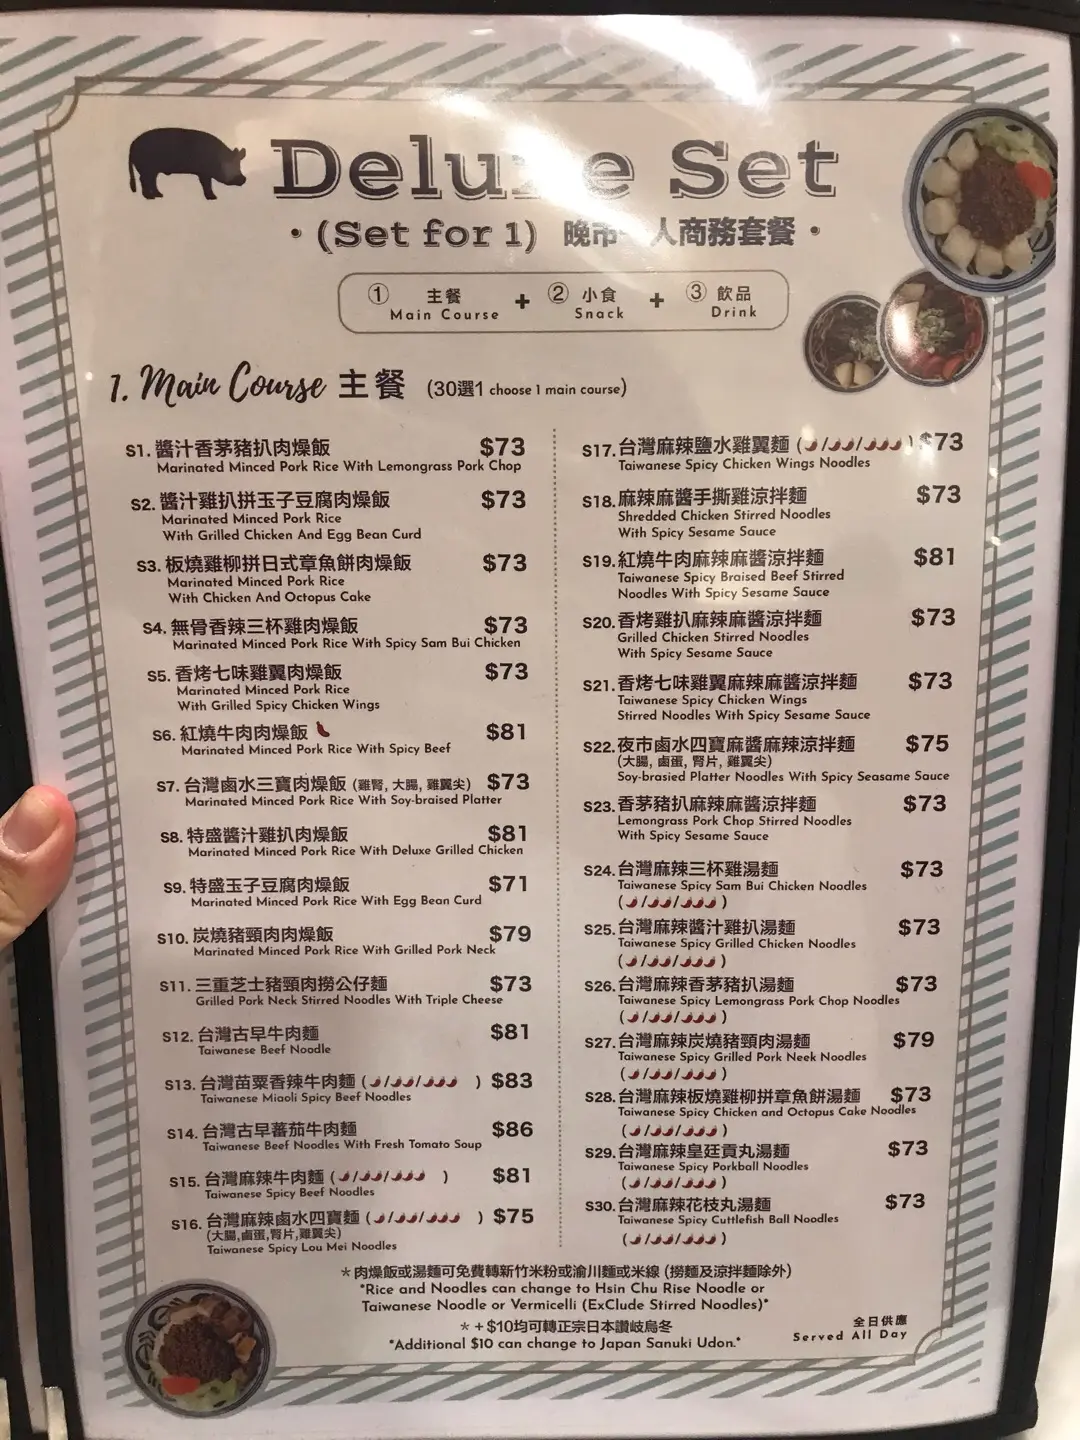 Deluxe Set
(Set for 1) 晚市一人商務套餐
① 主餐 + ② 小食 + ③ 飲品
Main Course Snack Drink
1. Main Course 主餐 (30選1 choose 1 main course)
S1. 醬汁香茅豬扒肉燥飯 $73
Marinated Minced Pork Rice With Lemongrass Pork Chop
S2. 醬汁雞扒拼玉子豆腐肉燥飯 $73
Marinated Minced Pork Rice
With Grilled Chicken And Egg Bean Curd
S3. 板燒雞柳拼日式章魚餅肉燥飯 $73
Marinated Minced Pork Rice
With Chicken And Octopus Cake
S4. 無骨香辣三杯雞肉燥飯 $73
Marinated Minced Pork Rice With Spicy Sam Bui Chicken
S5. 香烤七味雞翼肉燥飯 $73
Marinated Minced Pork Rice
With Grilled Spicy Chicken Wings
S6. 紅燒牛肉肉燥飯 $81
Marinated Minced Pork Rice With Spicy Beef
S7. 台灣鹵水三寶肉燥飯 (雞腎, 大腸, 雞翼尖) $73
Marinated Minced Pork Rice With Soy-braised Platter
S8. 特盛醬汁雞扒肉燥飯 $81
Marinated Minced Pork Rice With Deluxe Grilled Chicken
S9. 特盛玉子豆腐肉燥飯 $71
Marinated Minced Pork Rice With Egg Bean Curd
S10. 炭燒豬頸肉肉燥飯 $79
Marinated Minced Pork Rice With Grilled Pork Neck
S11. 三重芝士豬頸肉撈公仔麵 $73
Grilled Pork Neck Stirred Noodles With Triple Cheese
S12. 台灣古早牛肉麵 $81
Taiwanese Beef Noodle
S13. 台灣苗粟香辣牛肉麵 ( / / ) $83
Taiwanese Miaoli Spicy Beef Noodles
S14. 台灣古早蕃茄牛肉麵 $86
Taiwanese Beef Noodles With Fresh Tomato Soup
S15. 台灣麻辣牛肉麵 ( / / ) $81
Taiwanese Spicy Beef Noodles
S16. 台灣麻辣鹵水四寶麵 ( / / ) $75
(大腸,鹵蛋,腎片,雞翼尖)
Taiwanese Spicy Lou Mei Noodles
S17. 台灣麻辣鹽水雞翼麵 ( / / ) $73
Taiwanese Spicy Chicken Wings Noodles
S18. 麻辣麻醬手撕雞涼拌麵 $73
Shredded Chicken Stirred Noodles
With Spicy Sesame Sauce
S19. 紅燒牛肉麻辣麻醬涼拌麵 $81
Taiwanese Spicy Braised Beef Stirred
Noodles With Spicy Sesame Sauce
S20. 香烤雞扒麻辣麻醬涼拌麵 $73
Grilled Chicken Stirred Noodles
With Spicy Sesame Sauce
S21. 香烤七味雞翼麻辣麻醬涼拌麵 $73
Taiwanese Spicy Chicken Wings
Stirred Noodles With Spicy Sesame Sauce
S22. 夜市鹵水四寶麻醬麻辣涼拌麵 $75
(大腸, 鹵蛋, 腎片, 雞翼尖)
Soy-brasied Platter Noodles With Spicy Seasame Sauce
S23. 香茅豬扒麻辣麻醬涼拌麵 $73
Lemongrass Pork Chop Stirred Noodles
With Spicy Sesame Sauce
S24. 台灣麻辣三杯雞湯麵 $73
Taiwanese Spicy Sam Bui Chicken Noodles
( / / )
S25. 台灣麻辣醬汁雞扒湯麵 $73
Taiwanese Spicy Grilled Chicken Noodles
( / / )
S26. 台灣麻辣香茅豬扒湯麵 $73
Taiwanese Spicy Lemongrass Pork Chop Noodles
( / / )
S27. 台灣麻辣炭燒豬頸肉湯麵 $79
Taiwanese Spicy Grilled Pork Neek Noodles
( / / )
S28. 台灣麻辣板燒雞柳拼章魚餅湯麵 $73
Taiwanese Spicy Chicken and Octopus Cake Noodles
( / / )
S29. 台灣麻辣皇廷貢丸湯麵 $73
Taiwanese Spicy Porkball Noodles
( / / )
S30. 台灣麻辣花枝丸湯麵 $73
Taiwanese Spicy Cuttlefish Ball Noodles
( / / )
*肉燥飯或湯麵可免費轉新竹米粉或渝川麵或米線 (撈麵及涼拌麵除外)
*Rice and Noodles can change to Hsin Chu Rise Noodle or
Taiwanese Noodle or Vermicelli (ExClude Stirred Noodles)*
*+$10均可轉正宗日本讚岐烏冬
*Additional $10 can change to Japan Sanuki Udon.*
全日供應
Served All Day